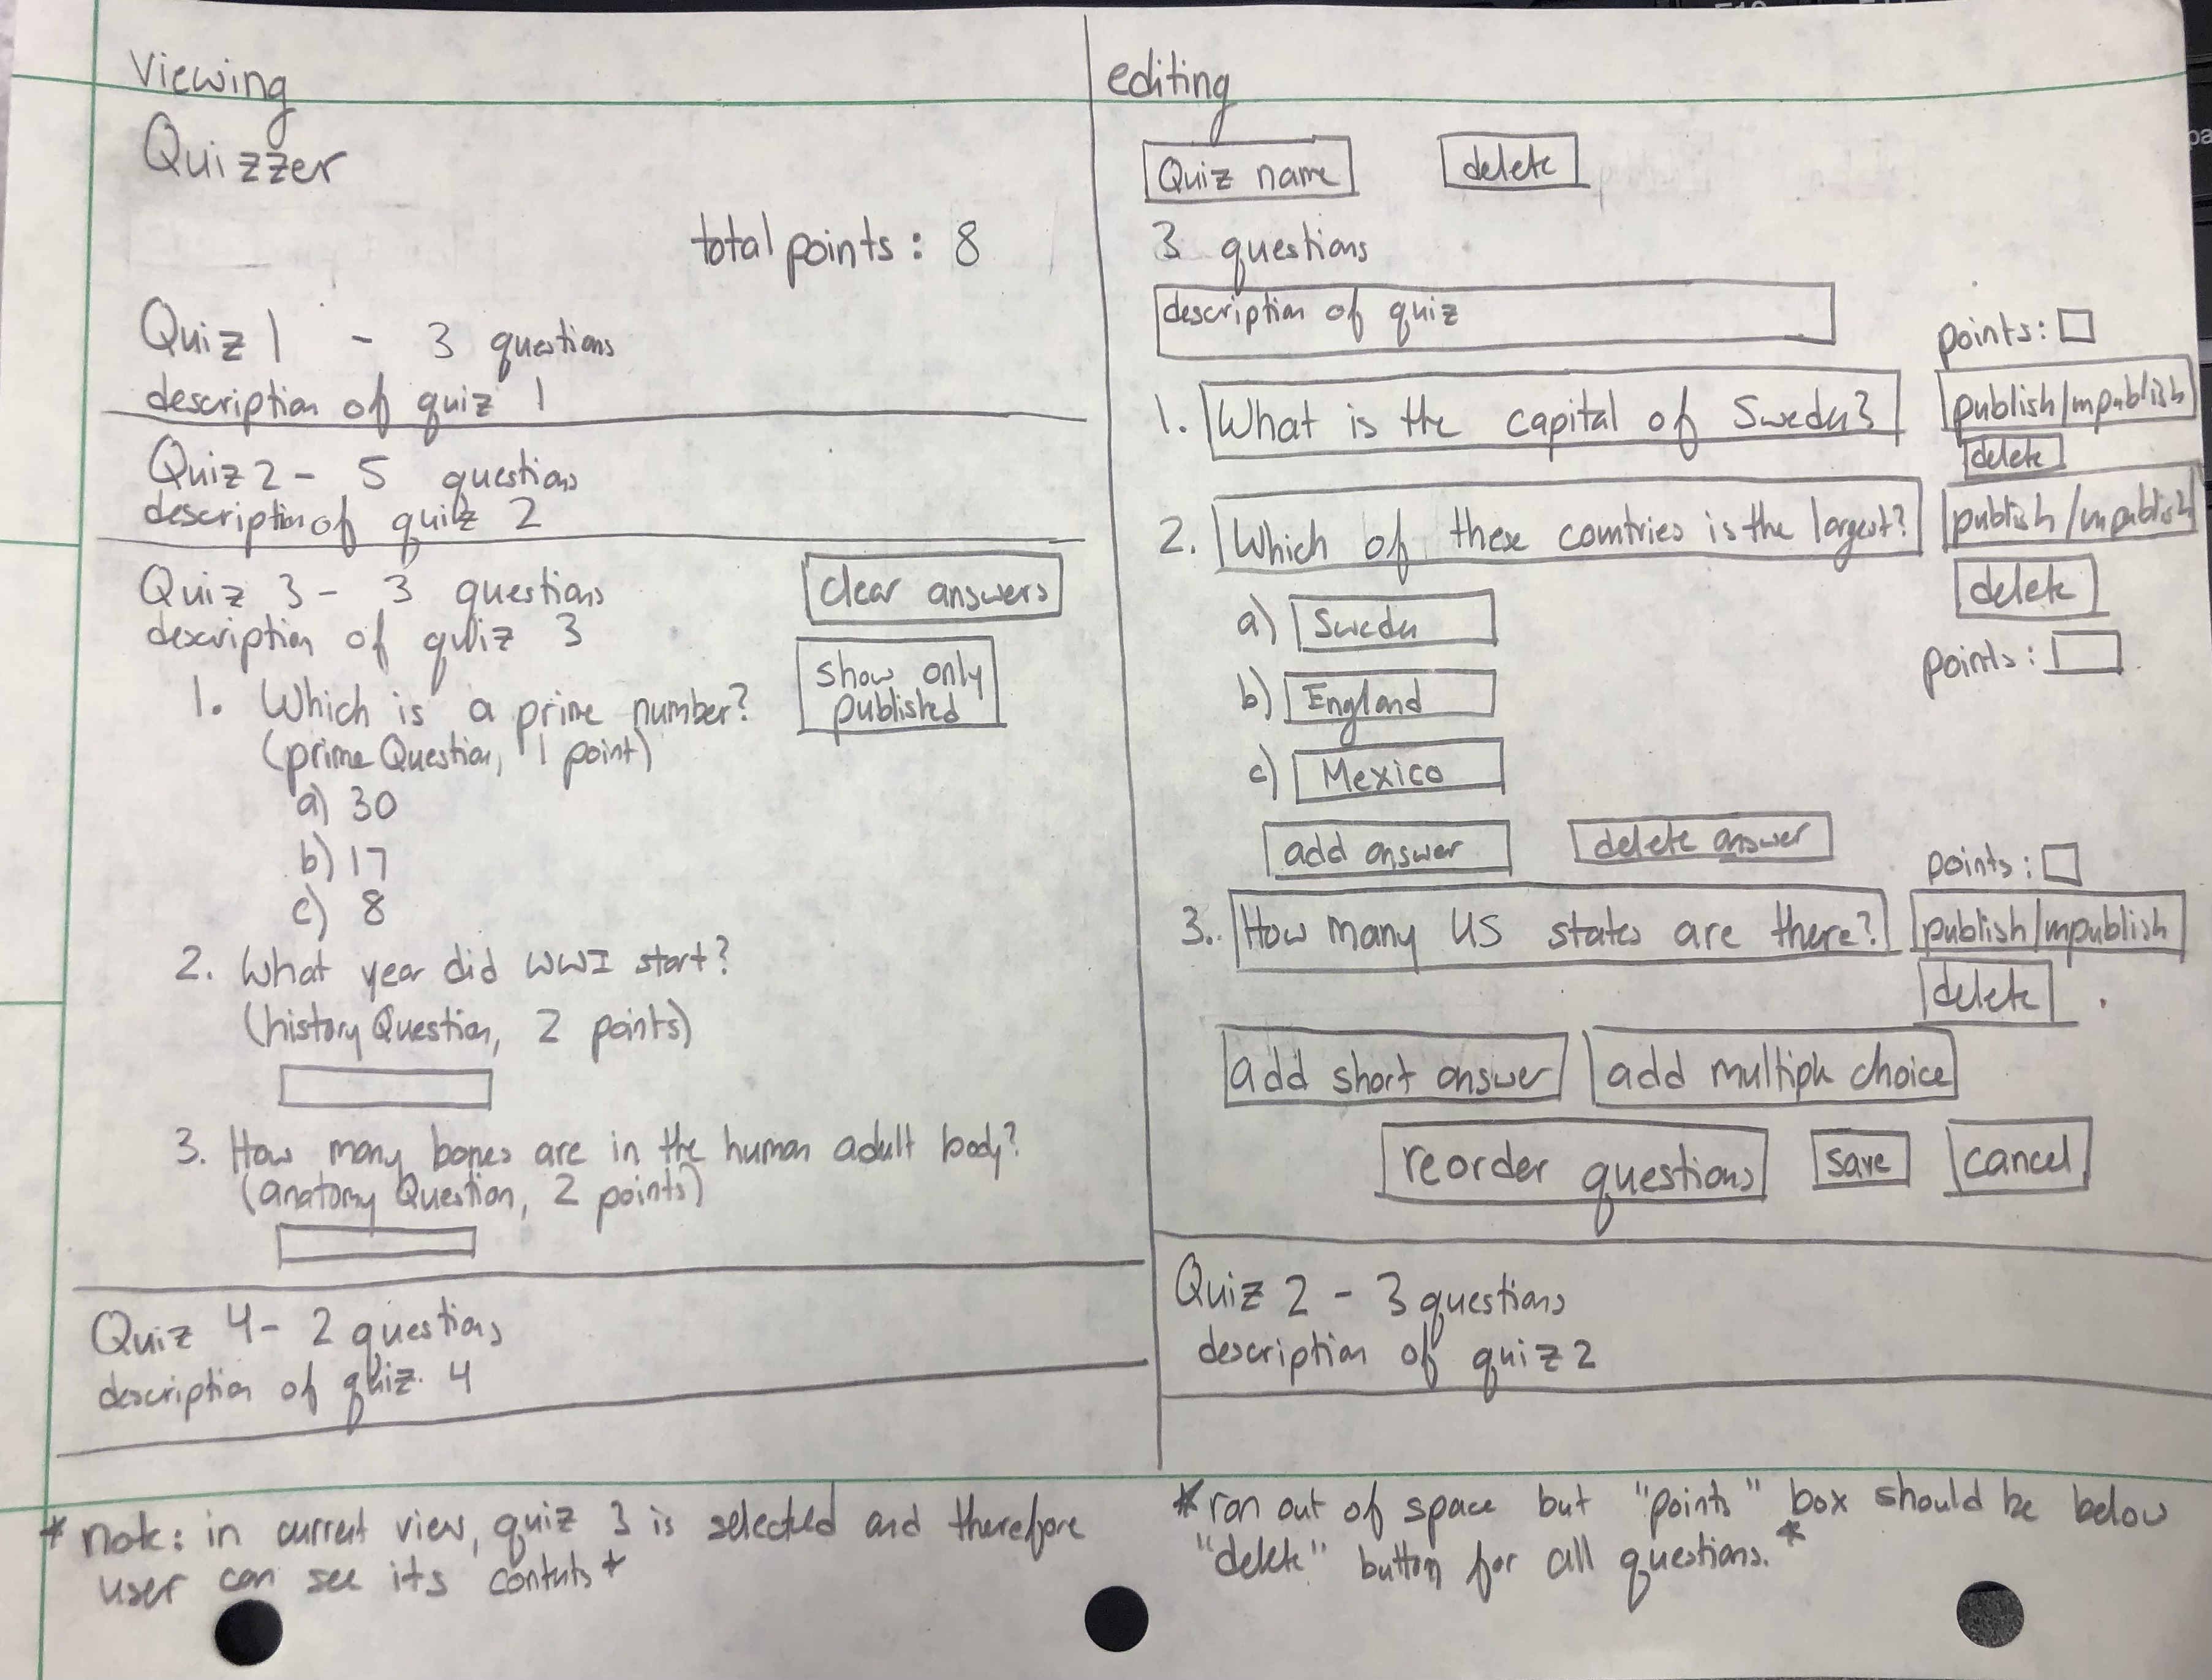 Viewing
Quizzer
total points: 8
Quiz 1 - 3 questions
description of quiz 1
Quiz 2 - 5 questions
description of quiz 2
Quiz 3 - 3 questions
description of quiz 3
clear answers
show only
published
1. Which is a prime number?
(prime Question, 1 point)
a) 30
b) 17
c) 8
2. What year did WWI start?
(history Question, 2 points)
3. How many bones are in the human adult body?
(anatomy Question, 2 points)
Quiz 4 - 2 questions
description of quiz 4
* note: in current view, quiz 3 is selected and therefore
user can see its contents *
editing
Quiz name
delete
3 questions
description of quiz
points:
1. What is the capital of Sweden?
publish/unpublish
delete
2. Which of these countries is the largest?
publish/unpublish
delete
points:
a) Sweden
b) England
c) Mexico
add answer
delete answer
points:
3. How many US states are there?
publish/unpublish
delete
add short answer
add multiple choice
reorder questions
save
cancel
Quiz 2 - 3 questions
description of quiz 2
* ran out of space but "points" box should be below
"delete" button for all questions. *